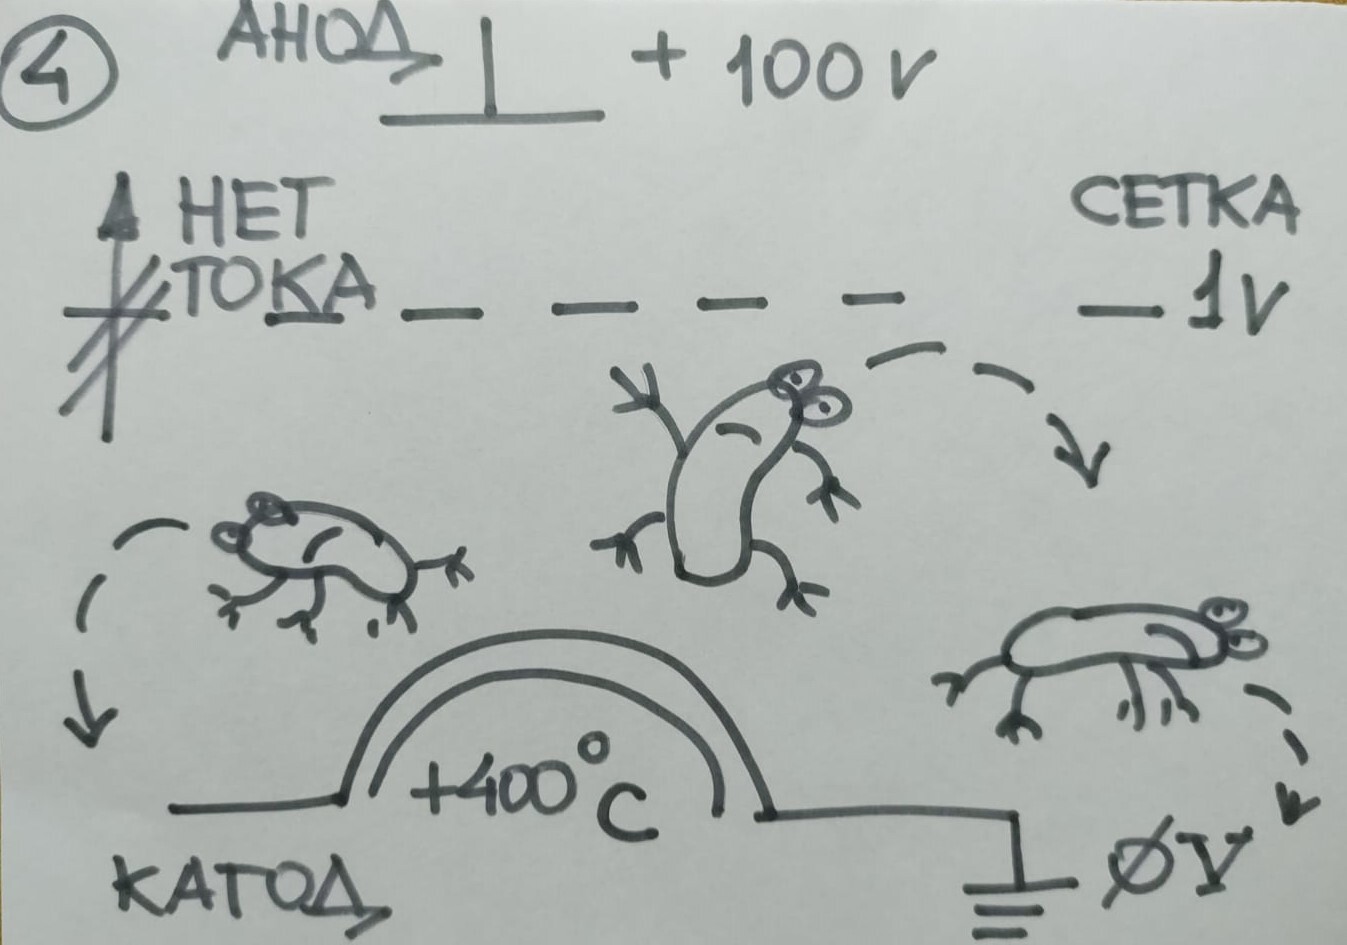 4
АНОД + 100 V
НЕТ
ТОКА
СЕТКА
— 1V
+400°C
КАТОД
ØV